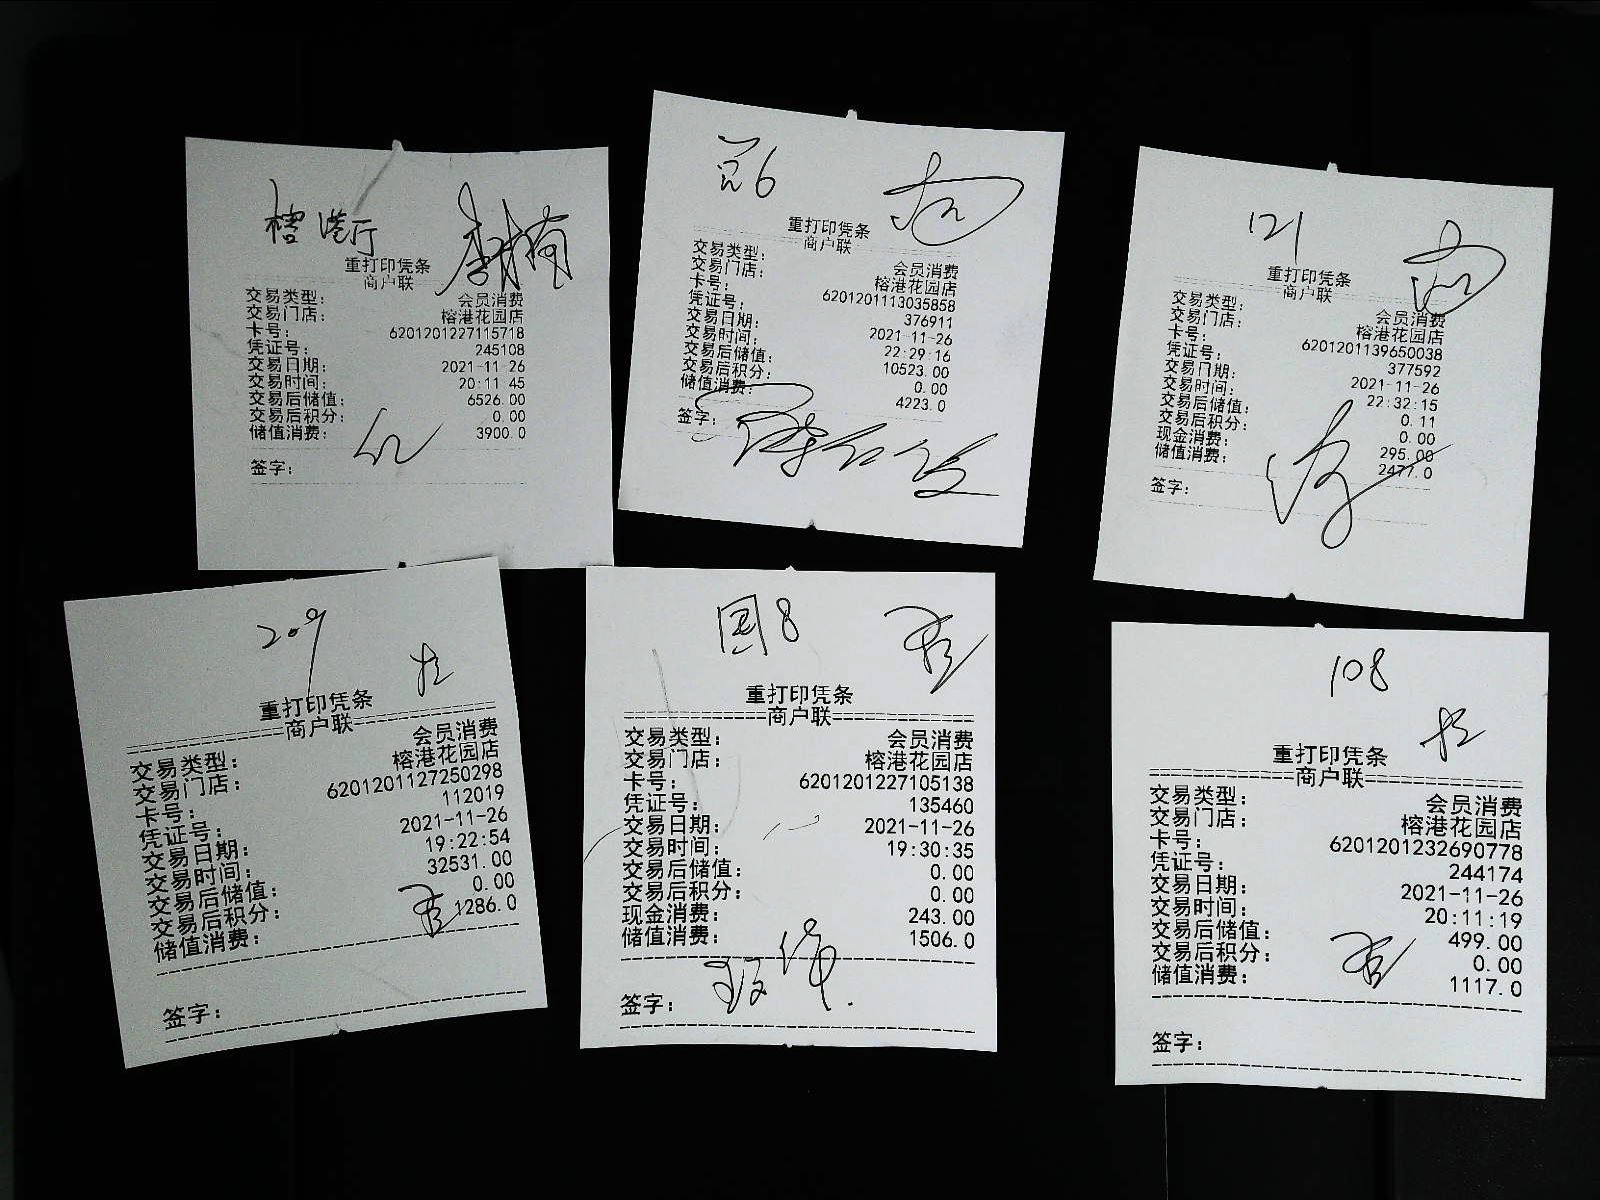 榕港厅
重打印凭条
商户联
交易类型: 会员消费
交易门店: 榕港花园店
卡号: 6201201227115718
凭证号: 245108
交易日期: 2021-11-26
交易时间: 20:11:45
交易后储值: 6526.00
交易后积分: 0.00
储值消费: 3900.0
签字:
6
重打印凭条
商户联
交易类型: 会员消费
交易门店: 榕港花园店
卡号: 6201201113035858
凭证号: 376911
交易日期: 2021-11-26
交易时间: 22:29:16
交易后储值: 10523.00
交易后积分: 0.00
储值消费: 4223.0
签字:
121
重打印凭条
商户联
交易类型: 会员消费
交易门店: 榕港花园店
卡号: 6201201139650038
凭证号: 377592
交易日期: 2021-11-26
交易时间: 22:32:15
交易后储值: 0.11
交易后积分: 0.00
现金消费: 295.00
储值消费: 2477.0
签字:
209
重打印凭条
商户联
交易类型: 会员消费
交易门店: 榕港花园店
卡号: 6201201127250298
凭证号: 112019
交易日期: 2021-11-26
交易时间: 19:22:54
交易后储值: 32531.00
交易后积分: 0.00
储值消费: 1286.0
签字:
国8
重打印凭条
商户联
交易类型: 会员消费
交易门店: 榕港花园店
卡号: 6201201227105138
凭证号: 135460
交易日期: 2021-11-26
交易时间: 19:30:35
交易后储值: 0.00
交易后积分: 0.00
现金消费: 243.00
储值消费: 1506.0
签字:
108
重打印凭条
商户联
交易类型: 会员消费
交易门店: 榕港花园店
卡号: 6201201232690778
凭证号: 244174
交易日期: 2021-11-26
交易时间: 20:11:19
交易后储值: 499.00
交易后积分: 0.00
储值消费: 1117.0
签字: